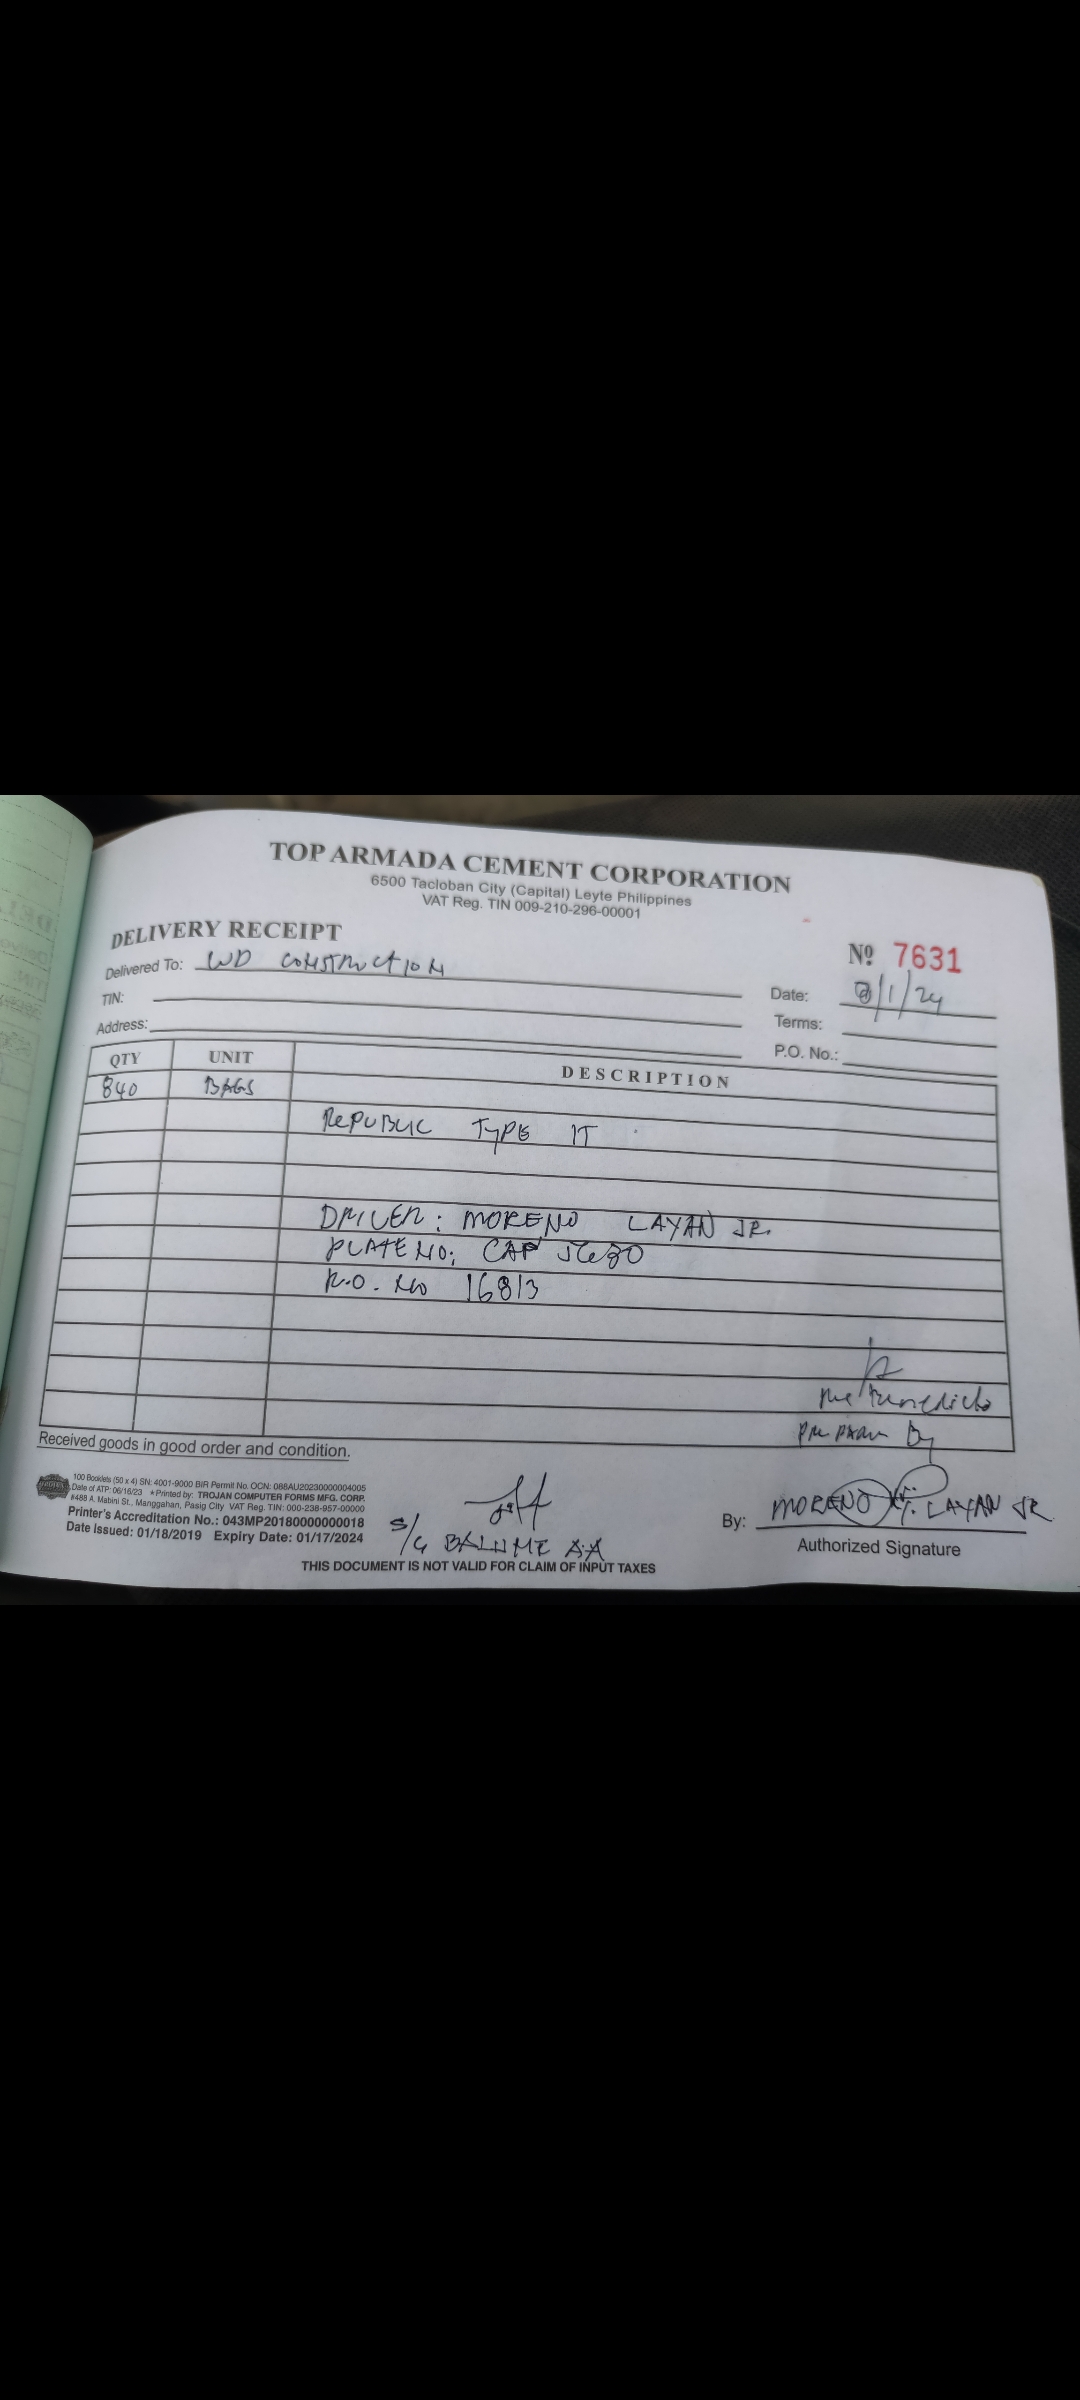 TOP ARMADA CEMENT CORPORATION
6500 Tacloban City (Capital) Leyte Philippines
VAT Reg. TIN 009-210-296-00001
DELIVERY RECEIPT
Nº 7631
Delivered To: WD CONSTRUCTION
Date: /1/24
TIN:
Terms:
Address:
P.O. No.:
QTY UNIT DESCRIPTION
840 BAGS
REPUBLIC TYPE 1T
DRIVER: MORENO LAYAN JR.
PLATE NO: CAP
R.O. No 16813
By
Received goods in good order and condition.
100 Booklets (50 x 4) SN: 4001-9000 BIR Permit No. OCN: 088AU20230000004005
Date of ATP: 06/16/23 *Printed by: TROJAN COMPUTER FORMS MFG. CORP.
#488 A. Mabini St., Manggahan, Pasig City VAT Reg. TIN: 000-238-957-00000
Printer's Accreditation No.: 043MP20180000000018
Date Issued: 01/18/2019 Expiry Date: 01/17/2024
S/G
By: MORENO LAYAN JR
Authorized Signature
THIS DOCUMENT IS NOT VALID FOR CLAIM OF INPUT TAXES